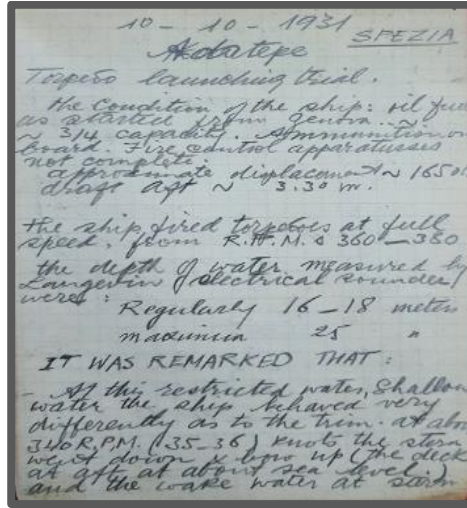 10 - 10 - 1931
SPEZIA
Adatepe
Torpedo launching trial.
The Condition of the ship: oil fuel
as started from Genova ~
~ 3/4 capacity. Ammunition on
board. Fire control apparatusses
not complete
approximate displacement ~ 1650
draft aft ~ 3.30 m.
the ship fired torpedoes at full
speed, from R.P.M. 360 — 380
the depth of water measured by
Langevin electrical sounder
were :
Regularly 16 — 18 meters
maximum 25 "
IT WAS REMARKED THAT :
- At this restricted water, Shallow
water the ship behaved very
differently as to the trim. at abou
340 R.P.M. (35-36) knots the stern
went down & bow up (the deck
at aft at about sea level)
and the wake water at